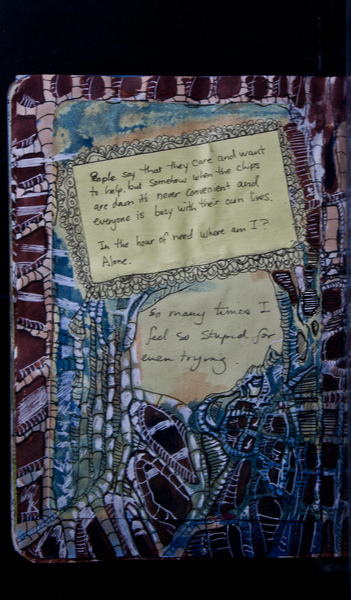 People say that they care and want
to help but somehow when the chips
are down its never convenient and
everyone is busy with their own lives.
In the hour of need where am I?
Alone.
So many times I
feel so stupid for
even trying.